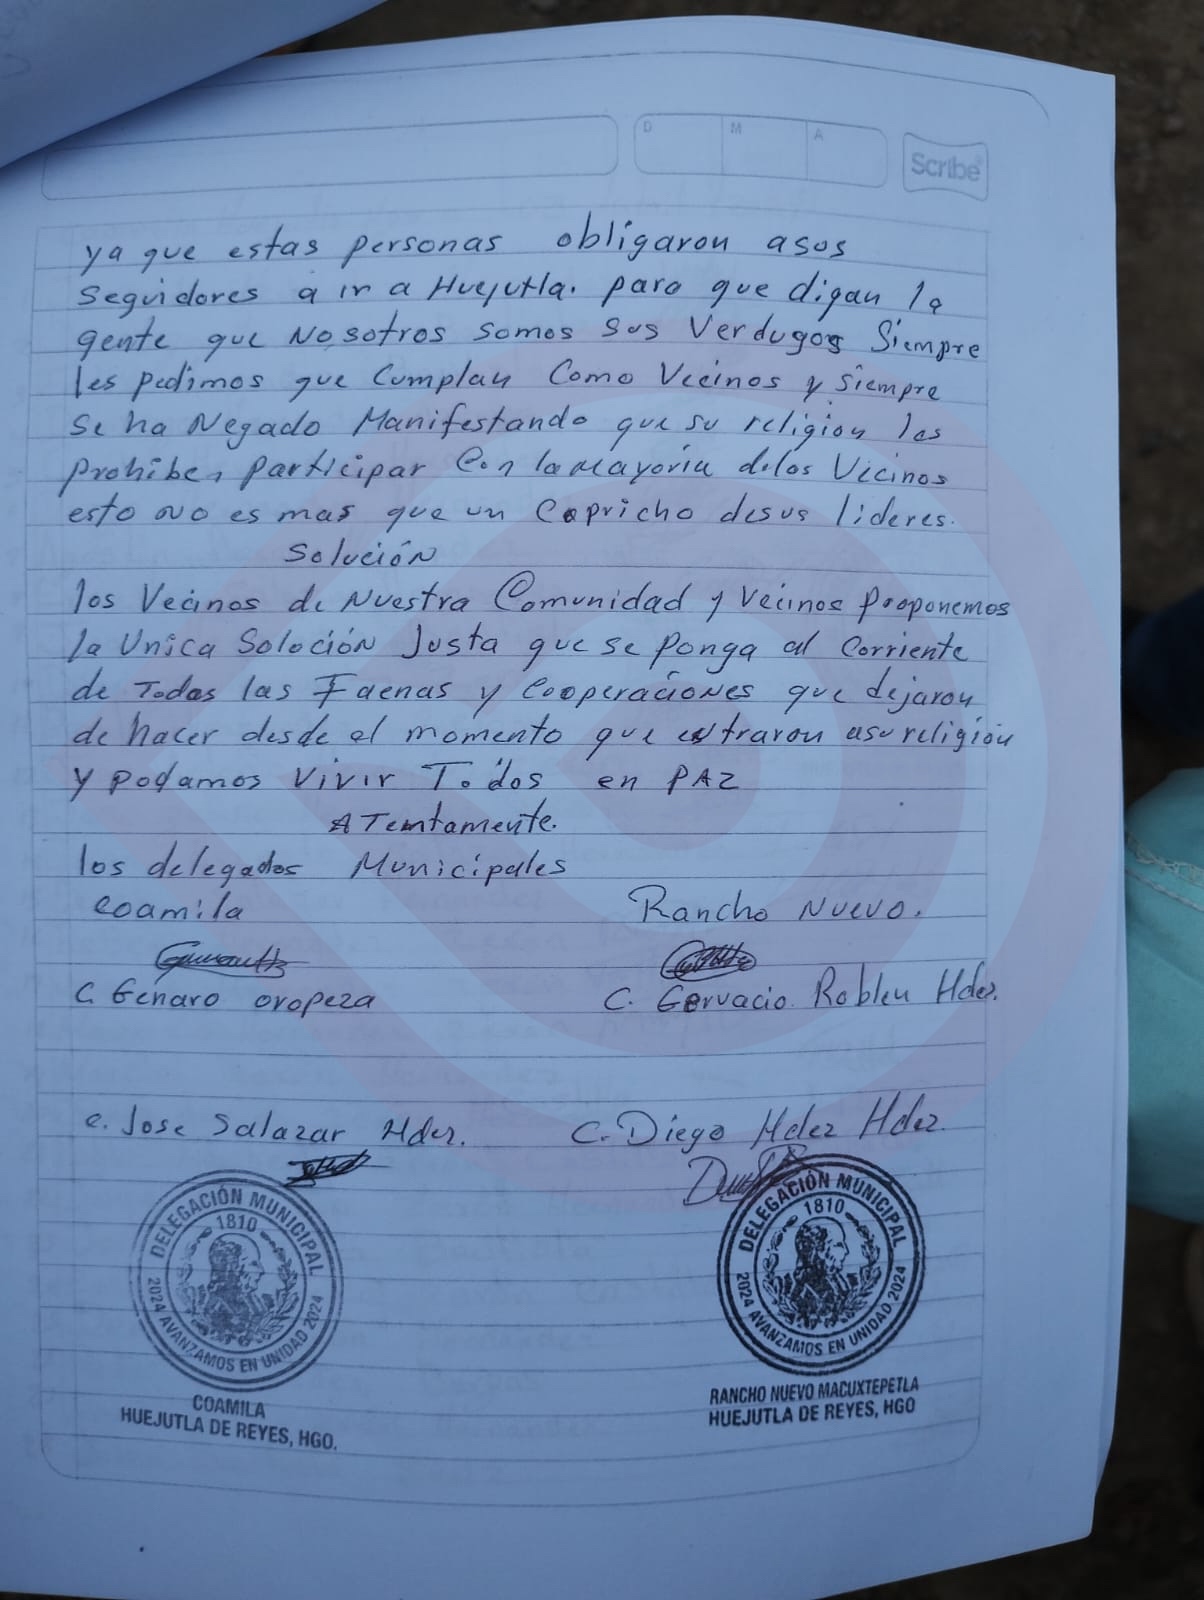 D M A
Scribe
ya que estas personas obligaron asus
seguidores a ir a Huejutla. para que digan la
gente que Nosotros somos sus Verdugos Siempre
les pedimos que Cumplan Como Vecinos y siempre
se ha Negado Manifestando que su religion les
prohiben participar Con la mayoria delos Vecinos
esto no es mas que un Capricho desus lideres.
Solución
los Vecinos de Nuestra Comunidad y Vecinos proponemos
la Unica Soloción Justa que se ponga al Corriente
de Todas las Faenas y Cooperaciones que dejaron
de hacer desde el momento que entraron asu religión
y podamos Vivir Todos en PAZ
ATentamente.
los delegados Municipales
Coamila Rancho Nuevo.
C. Genaro oropeza C. Gervacio Robleu Hdez.
C. Jose Salazar Hdez. C. Diego Hdez Hdez.
DELEGACIÓN MUNICIPAL
1810
2024 AVANZAMOS EN UNIDAD 2024
COAMILA
HUEJUTLA DE REYES, HGO.
DELEGACIÓN MUNICIPAL
1810
2024 AVANZAMOS EN UNIDAD 2024
RANCHO NUEVO MACUXTEPETLA
HUEJUTLA DE REYES, HGO